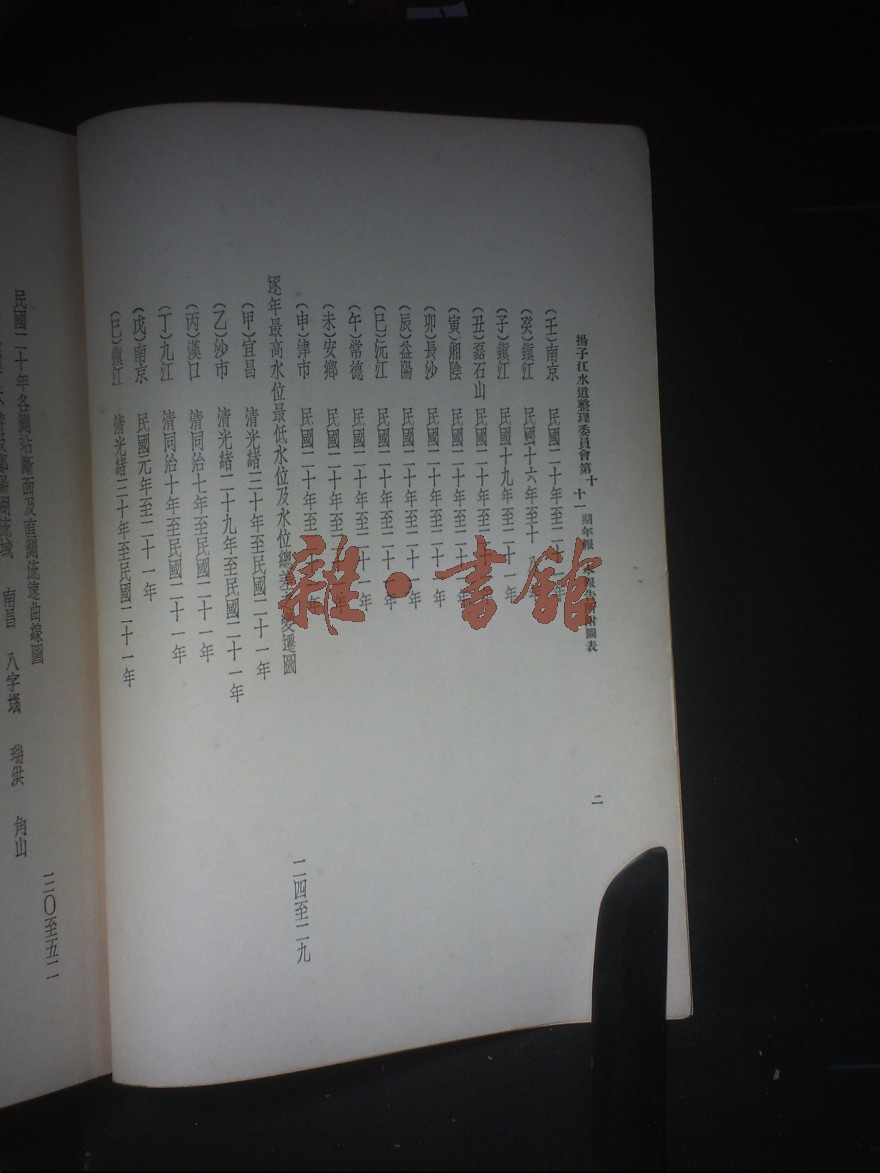 揚子江水道整理委員會第十 十一期年報 圖表
(壬)南京 民國二十年至二十一年
(癸)鎮江 民國十六年至十八
(子)鎮江 民國十九年至二十一年
(丑)磊石山 民國二十年至二十
(寅)湘陰 民國二十年至二十一年
(卯)長沙 民國二十年至二十一年
(辰)益陽 民國二十年至二十一年
(巳)沅江 民國二十年至二十一年
(午)常德 民國二十年至二十一年
(未)安鄉 民國二十年至二十一年
(申)津市 民國二十年至二十一年
逐年最高水位最低水位及水位總差之變遷圖 二四至二九
(甲)宜昌 清光緒三十年至民國二十一年
(乙)沙市 清光緒二十九年至民國二十一年
(丙)漢口 清同治七年至民國二十一年
(丁)九江 清同治十年至民國二十一年
(戊)南京 民國元年至二十一年
(己)鎮江 清光緒三十年至民國二十一年
二
民國二十年各測站斷面及直測流速曲線圖 三〇至五二
鄱陽湖流域 南昌 八字壋 瑞洪 角山
雜·書館